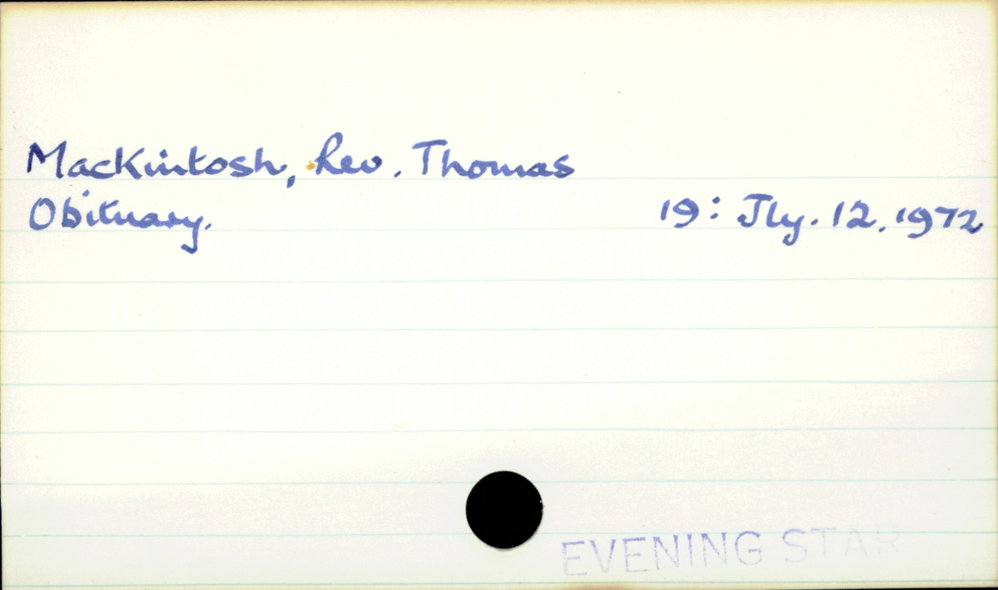 MacKintosh, Rev. Thomas
Obituary. 19: Jly. 12. 1972
EVENING STAR